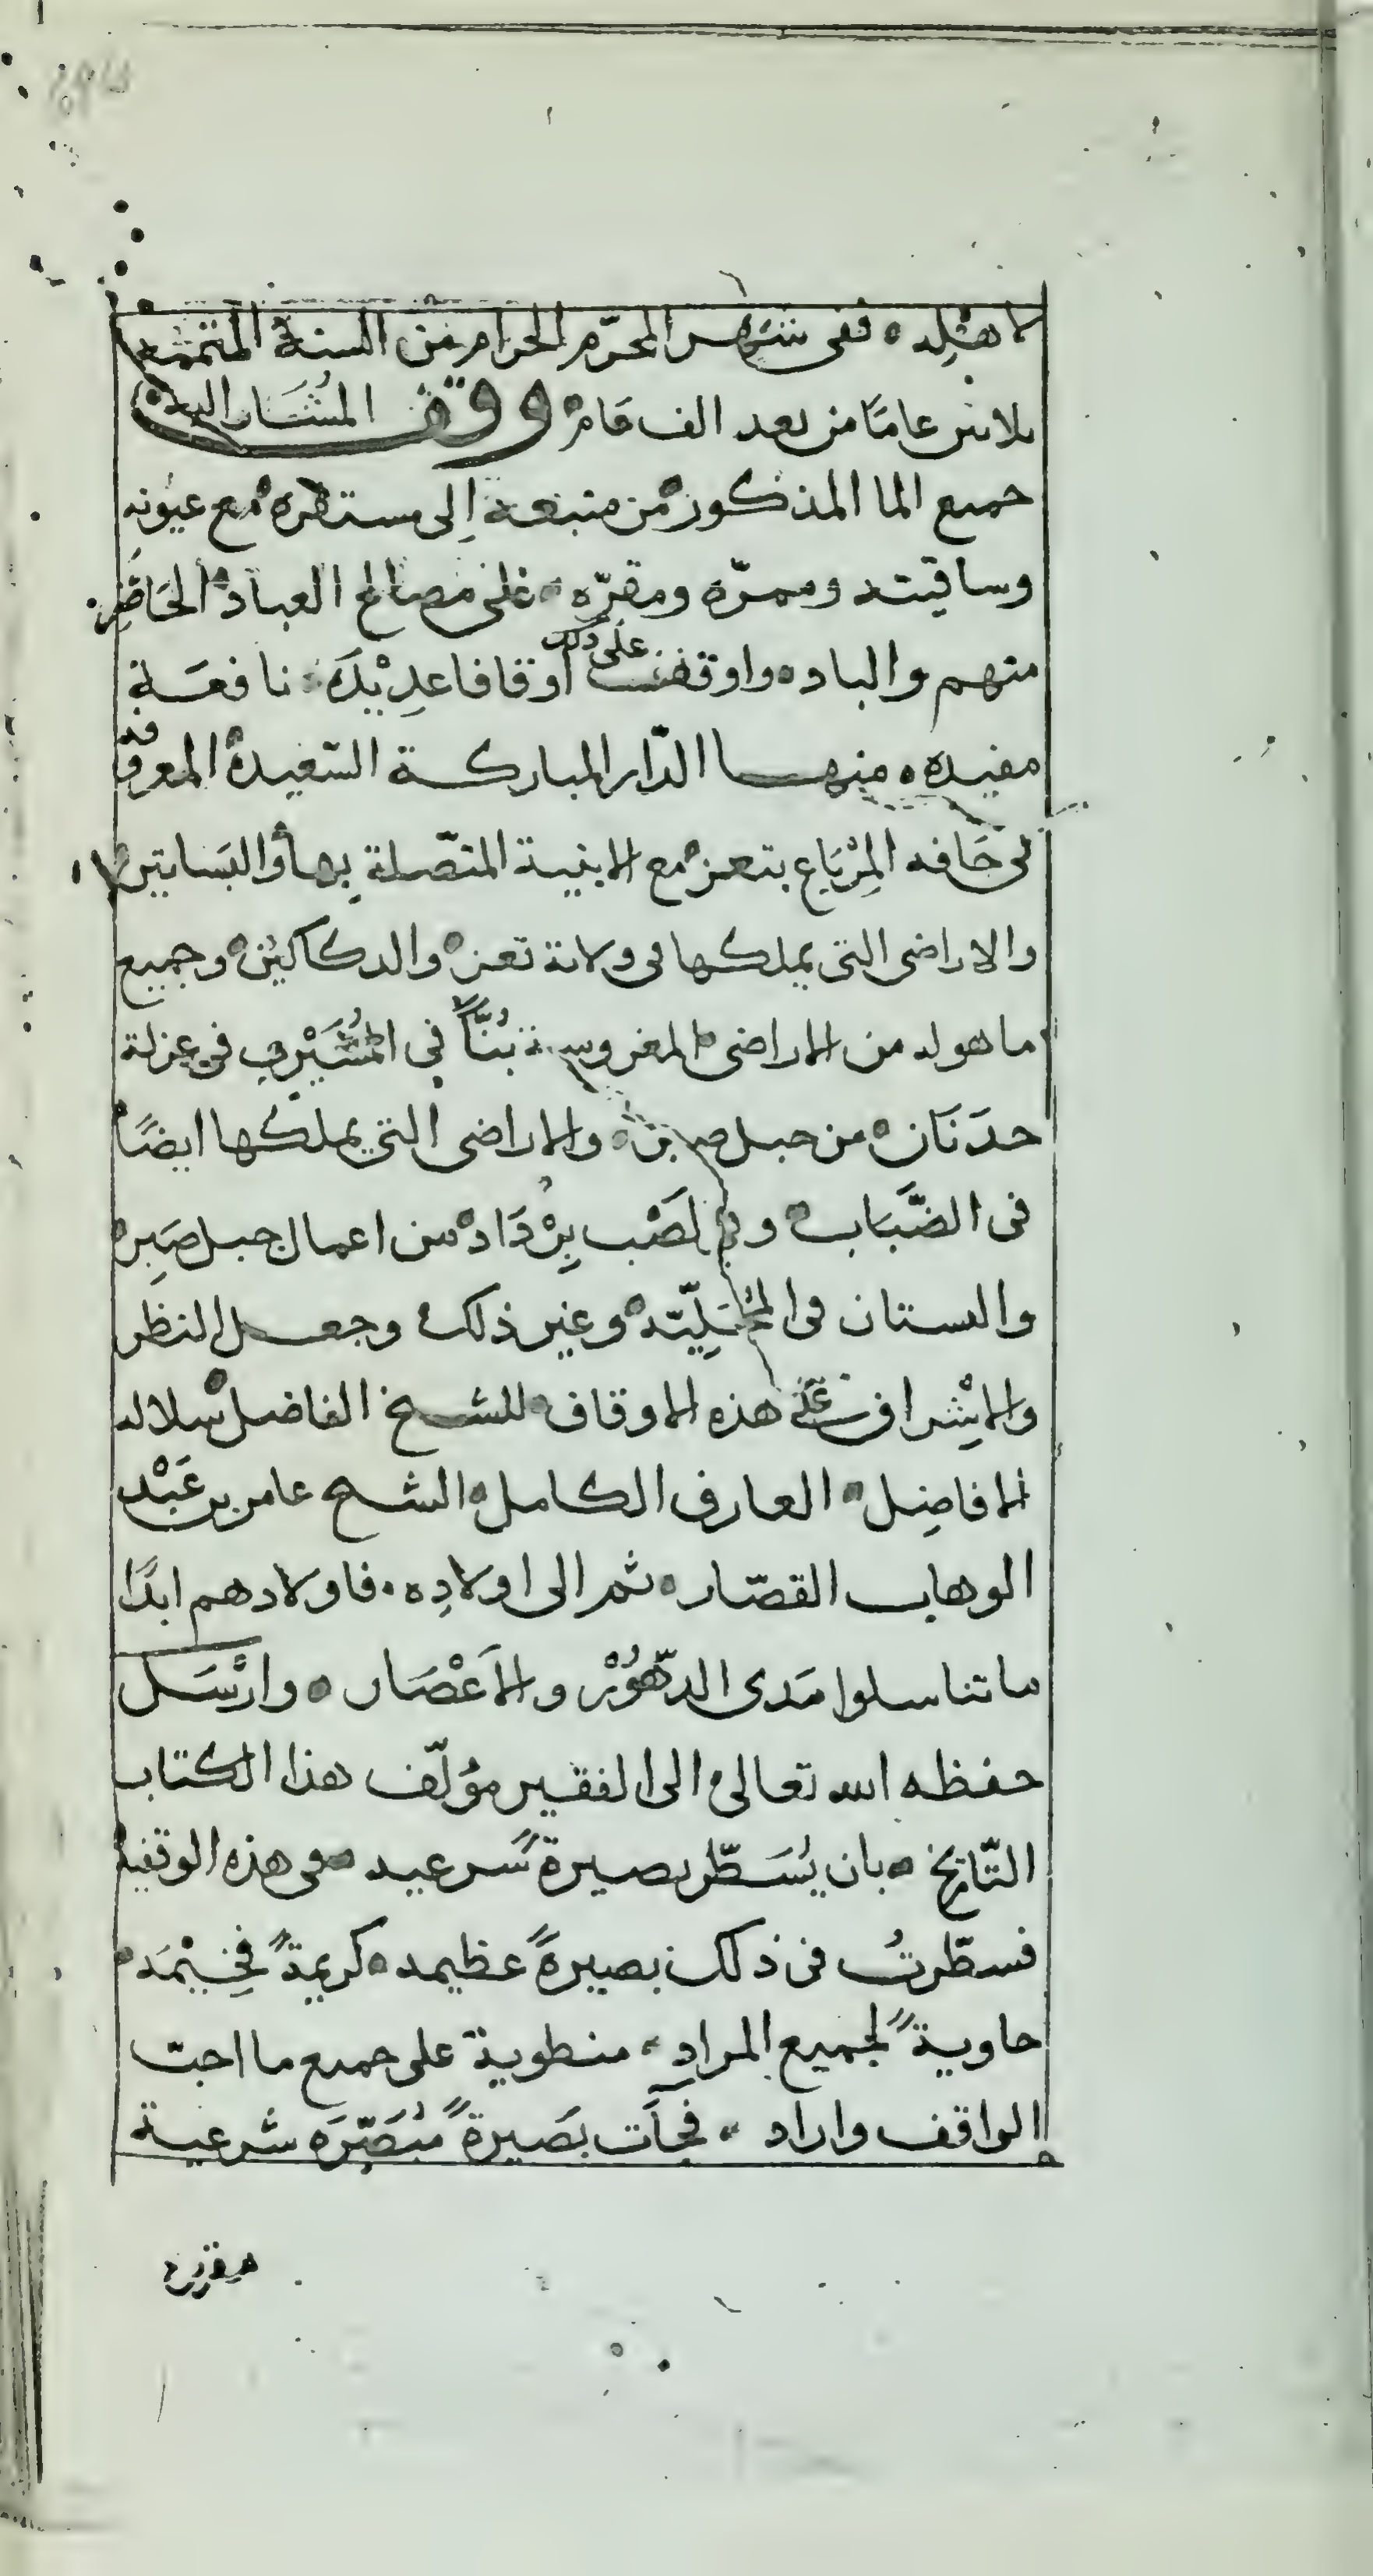 لاهله ٥ ففي شهر المحرّم الحرام من السنة المتممة
ثلاثين عامًا من بعد الف عام وقف المُشَار اليه
جميع الما المذكور من منبعه إلى مستقره مع عيونه
وساقيته وممرّه ومقرّه ٥ على مصالح العباد الحَاضِر
منهم والباد ٥ واوقف على ذلك أوقافا عدِيْدَه نافعَة
مفيده ٥ منها الدّار المباركة السّعيدة المعروفة
في حَافه المِرْبَاع بتعز مع الابنية المتّصلة بها والبَساتين
والاراضى التى يملكها فى ولاية تعز ٥ والدكاكين ٥ وجميع
ما هو له من الاراضى المغروسة بُنّاً في المُشَيْرِب في عزلة
حدَنَان ٥ من جبل صبر ٥ والاراضى التي يملكها ايضًا
فى الضّبَاب ٥ وفي لصْب بِرْدَاد ٥ من اعمال جبل صَبِر ٥
والبستان فى المحَلِيّه ٥ وغير ذلك وجعل النظر
والاِشراف على هذه الاوقاف للشيخ الفاضل سلاله
الافاضِل ٥ العارف الكامل ٥ الشيخ عامر بن عَبْد
الوهاب القصّار ٥ ثم الى اولادِه ٥ فاولادهم ابدًا
ما تناسلوا مَدى الدّهُوْر والاَعْصَار ٥ وارْسَل
حفظه الله تعالى الى الفقير مؤلّف هذا الكتاب
التّاريخ ٥ بان يُسَطّر بصيرةً شرعيه ٥ في هذه الوقفية
فسطّرتُ فى ذلك بصيرةً عظيمه ٥ كريمةً فخِيْمَه ٥
حاويةً لجميع المرادِ ٥ منطوية على جميع ما احبّ
الواقف واراد ٥ فجآت بَصَيرةً مُبَصِّرَه شرعية